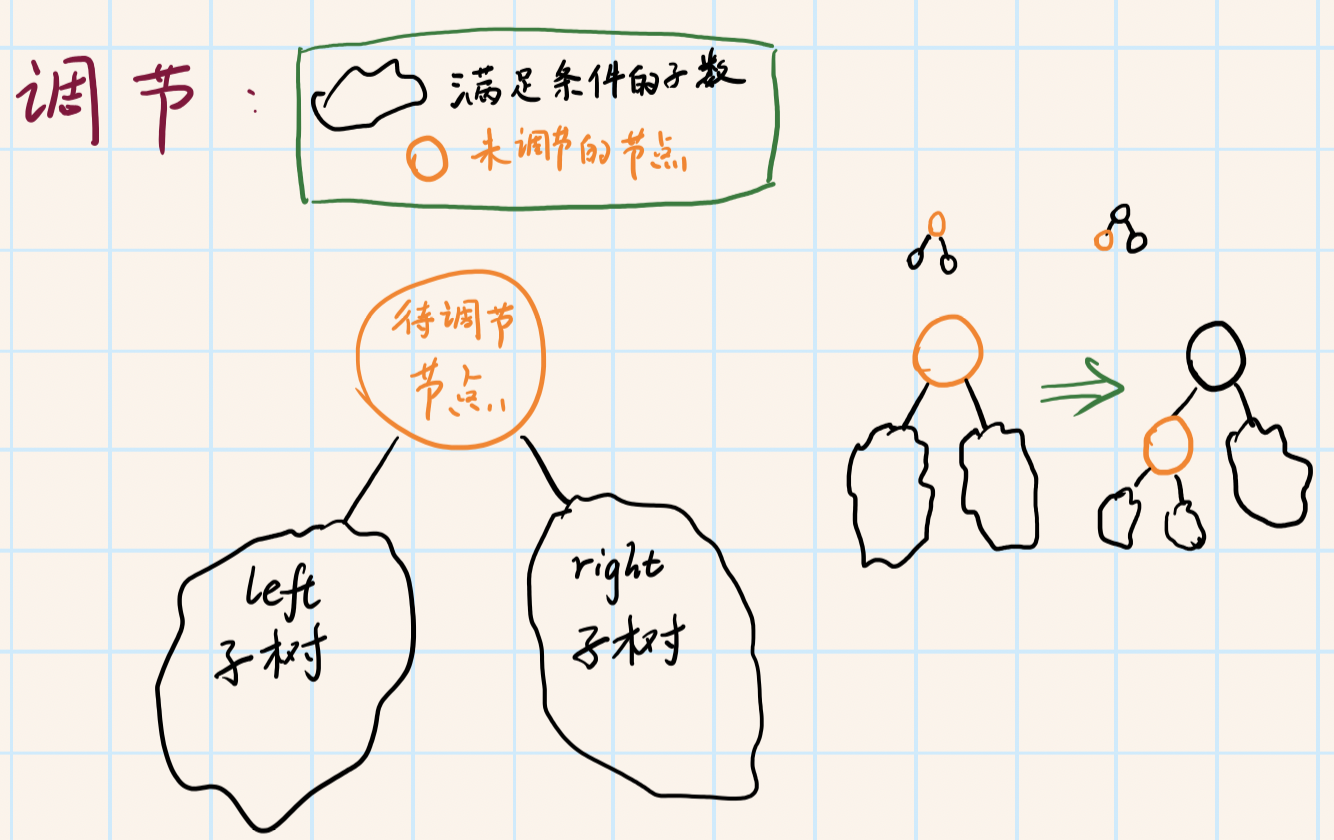 调节:
满足条件的子数
未调节的节点
待调节
节点
left
子树
right
子树